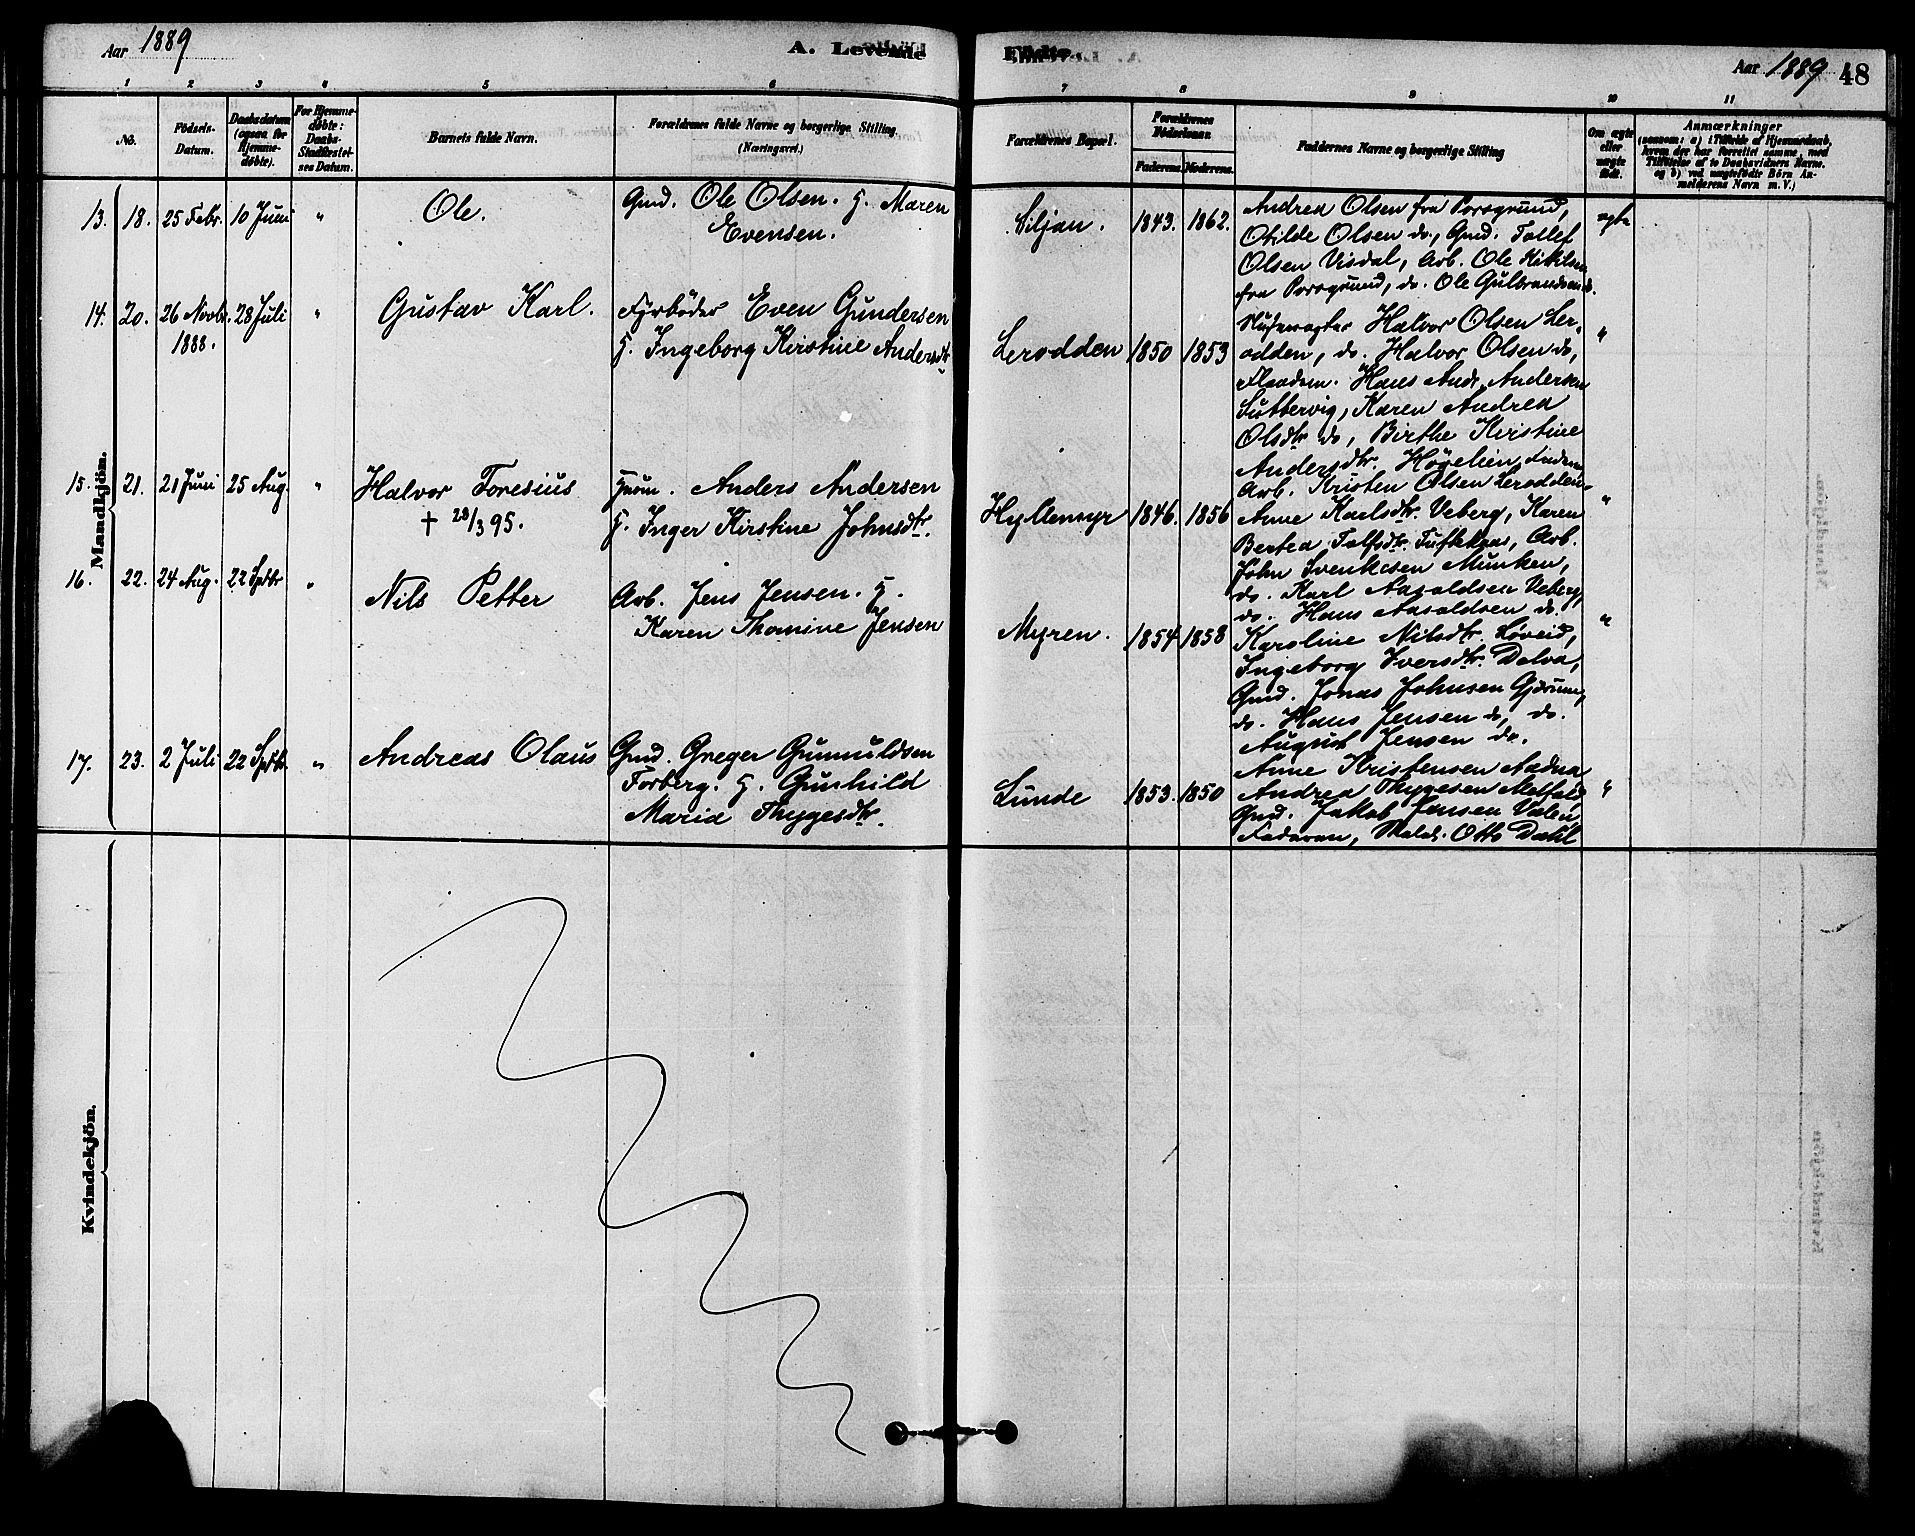 Aar 1889
A. Levende
Fødte.
Aar 1889
48
1 2 3 4 5 6 7 8 9 10 11
No.
Födsels-Datum.
Daabsdatum (ogsaa for Hjemme-døbte).
For Hjemme-døbte: Daabs-Stadfæstel-ses Datum.
Barnets fulde Navn.
Forældrenes fulde Navne og borgerlige Stilling. (Næringsvei.)
Forældrenes Bopæl.
Forældrenes Fødselsaar.
Faderens. Moderens.
Faddernes Navne og borgerlige Stilling
Om ægte eller uægte født.
Anmærkninger
(saasom: a) i Tilfælde af Hjemmedaab,
hvem der har forrettet samme, med
Tilføielse af to Daabsvidners Navne.
og b) ved uægtefødte Börn An-
melderens Navn m. V.)
Mandkjön.
13. 18. 25 Febr. 10 Juni " Ole.
Gmd. Ole Olsen. H. Maren
Evensen.
Siljan. 1843. 1862.
Andrea Olsen fra Porsgrund,
Otilde Olsen do., Gmd. Tollef
Olsen Visdal, Arb. Ole Kittilsen
fra Porsgrund, do. Ole Gulbrandsen do.
ægte
14. 20. 26 Novbr. 28 Juli "
1888.
Gustav Karl.
Fyrbøder Even Gundersen
H. Ingeborg Kirstine Andersdtr.
Lerodden 1850 1853
Halvor Olsen Ler-
odden, do. Halvor Olsen do,
Hans Andr. Andersen
Karen Andrea
Olsdtr do, Birthe Kirstine
Andersdtr.
"
15. 21. 21 Juni 25 Aug. "
Halvor Foresius
† 28/3 95.
Anders Andersen
H. Inger Kirstine Johnsdtr.
Hyllemyr 1846. 1856
Arb. Kristen Olsen Lerodden.
Anne Karlsdtr. Veberg, Karen
Bertea Arb.
John Svenkesen Munken,
do. Karl Aasoldsen Veberg,
do. Hans Aasoldsen do.
"
16. 22. 24 Aug. 22 Sptbr "
Nils Petter
Arb. Jens Jensen. H.
Karen Thomine Jensen
Myren. 1854 1858
Karoline Nilsdtr. Løveid,
Ingeborg Iversdtr. Dalva,
Gmd. Jonas Johnsen
do. Hans Jensen do, do.
August Jensen do.
"
17. 23. 2 Juli 22 Sptbr. "
Andreas Olaus
Gmd. Greger Gunnuldsen
Forberg. H. Gunhild
Maria Thygesdtr.
Lunde 1853. 1850
Anne Kristensen
Andrea Thygesen
Gmd. Jakob Jensen
Faderen, Otto Dahl
"
Kvindekjön.